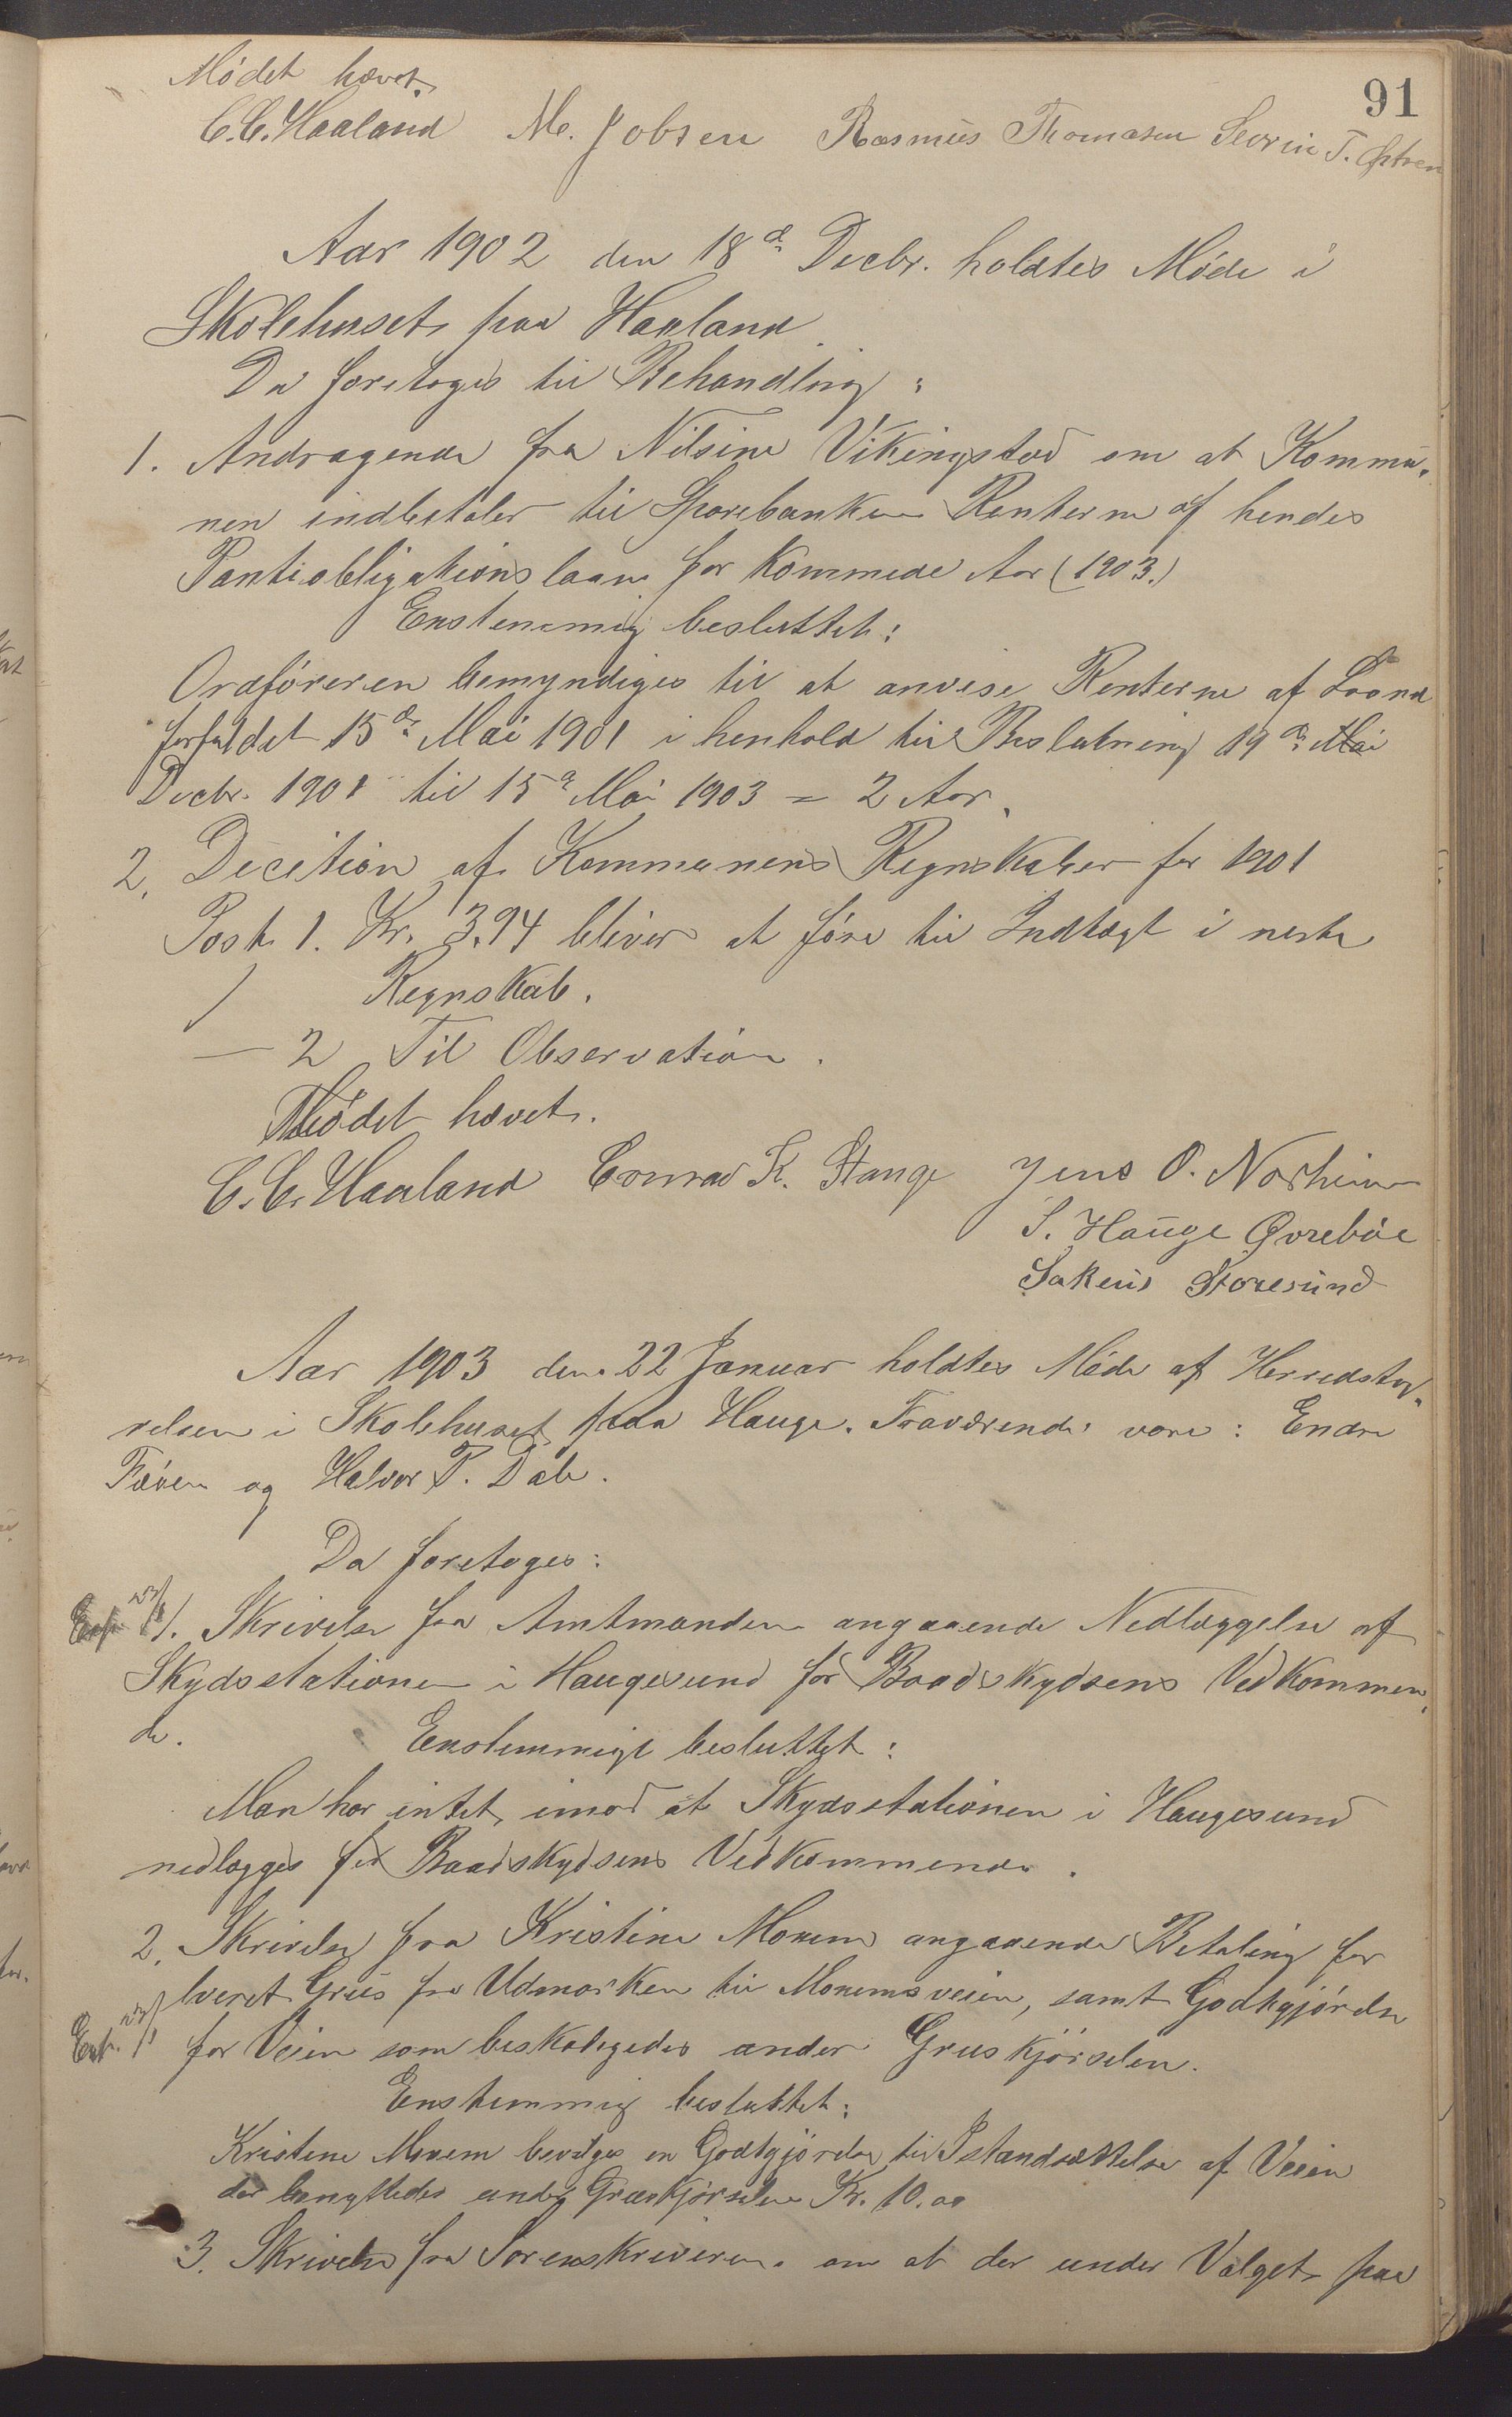 91
Mødet hævet.
C. C. Haaland M. Jobsen Rasmus Thomasen Sevrin T.
Aar 1902 den 18de Decbr. holdtes Møde i
Skolehuset paa Haaland.
Da foretoges til Behandling:
1. Andragende fra Nilsine Vikingstad om at Kommu-
nen indbetaler til Sparebanken Renterne af hendes
Pantiobligationslaan for kommede Aar (1903.)
Enstemmig besluttet:
Ordføreren bemyndiges til at anvise Renterne af Laanet
forfaldet 15de Mai 1901 i henhold til Beslutning 19de Mai
Decbr. 1901 til 15de Mai 1903 = 2 Aar.
2. Decition af Kommunens Regnskaber for 1901
Post 1. Kr. 3.94 bliver at føre til Indtægt i neste
Regnskab.
— 2 Til Observation.
Mødet hævet.
C. C. Haaland Conrad K. Stange Jens O. Norheim
S. Hauge Qvrebøe
Sakeus Storesund
Aar 1903 den 22 Januar holdtes Møde af Herredsty-
relsen i Skolehuset paa Hauge. Fraværende vare: Endre
Fæøen og Halvor P. Dale.
Da foretoges:
1. Skrivelse fra Amtmanden angaaende Nedlæggelse af
Skydsstationen i Haugesund for Baadskydsens Vedkommen-
de. Enstemmigt besluttet:
Man har intet imod at Skydsstationen i Haugesund
nedlægges for Baadskydsens Vedkommende.
2. Skrivelse fra Kristine Monem angaaende Betaling for
lveret Grus fra Udmarken til Monemsveien, samt Godtgjørelse
for Veien som beskadigedes under Gruskjørselen.
Enstemmig besluttet:
Kristine Monem bevilges en Godtgjørelse til Istandsættelse af Veien
der benyttedes under Gruskjørselen Kr. 10.00
3. Skrivelse fra Sorenskriveren om at der under Valget paa